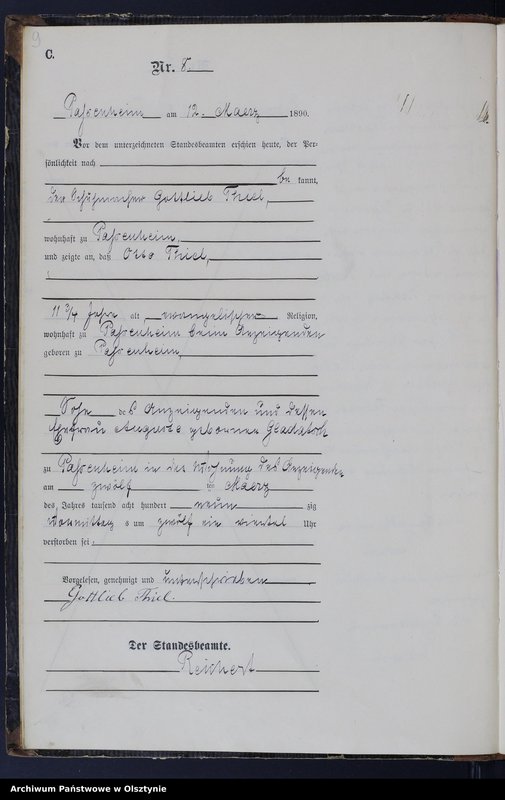 9
C.
Nr. 8.
Passenheim am 12. Maerz 1890.
Vor dem unterzeichneten Standesbeamten erschien heute, der Per-
sönlichkeit nach
be kannt,
der Schuhmacher Gottlieb Thiel,
wohnhaft zu Passenheim,
und zeigte an, daß Otto Thiel,
11 3/4 Jahre alt, evangelischer Religion,
wohnhaft zu Passenheim beim Anzeigenden
geboren zu Passenheim,
Sohn des Anzeigenden und dessen
Ehefrau Auguste geborenen
zu Passenheim in der Wohnung des Anzeigenden
am zwölf ten Maerz
des Jahres tausend acht hundert neun zig
Vormittag s um zwölf ein viertel Uhr
verstorben sei.
Vorgelesen, genehmigt und unterschrieben
Gottlieb Thiel.
Der Standesbeamte.
Reichert
Archiwum Państwowe w Olsztynie